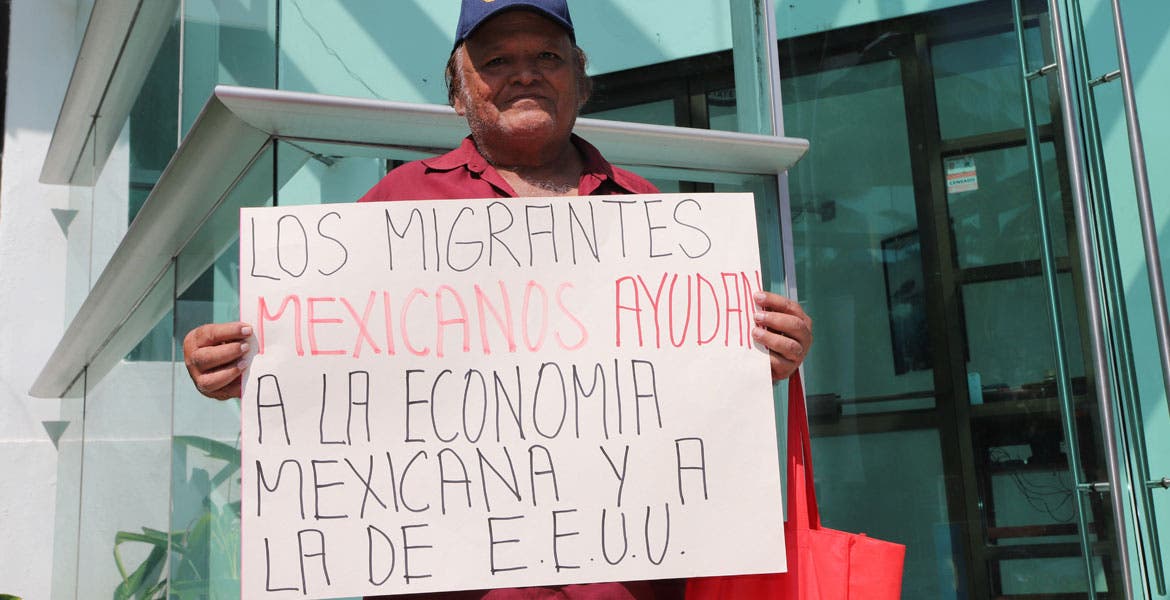 LOS MIGRANTES
MEXICANOS AYUDAN
A LA ECONOMIA
MEXICANA Y A
LA DE E.E.U.U.